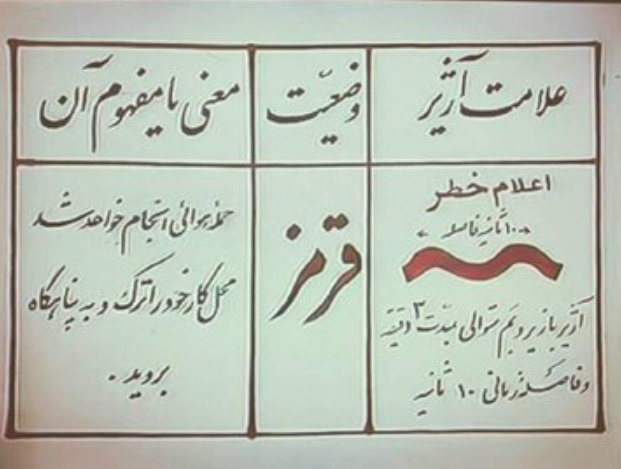 علامت آژیر
وضعیّت
معنی یا مفهوم آن
اعلام خطر
۱۰ ثانیه فاصله
آژیر با زیر و بم متوالی بمدّت ۳ دقیقه
و فاصله زمانی ۱۰ ثانیه
قرمز
حمله هوائی انجام خواهد شد
محل کار خود را ترک و به پناهگاه
بروید .